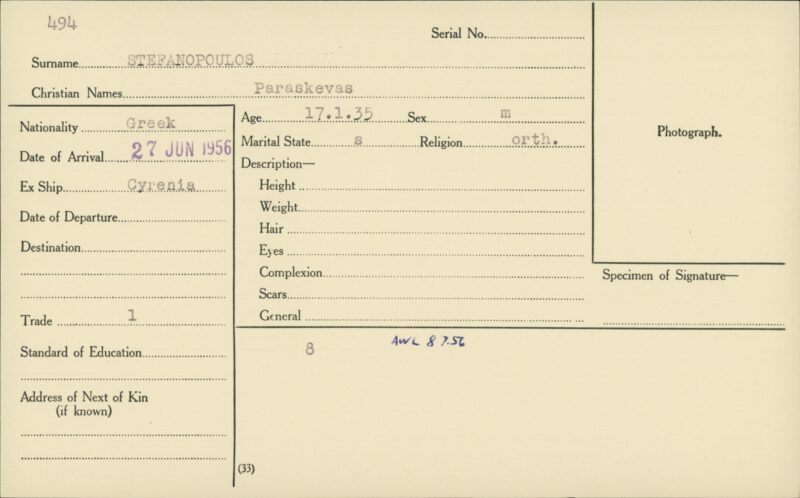 494
Serial No.
Surname STEFANOPOULOS
Christian Names Paraskevas
Nationality Greek
Date of Arrival 27 JUN 1956
Ex Ship Cyrenia
Date of Departure
Destination
Trade 1
Standard of Education
Address of Next of Kin
(if known)
Age 17.1.35 Sex m
Marital State s Religion orth.
Description—
Height
Weight
Hair
Eyes
Complexion
Scars
General
Photograph.
Specimen of Signature—
8 AWL 8 7.56
(33)